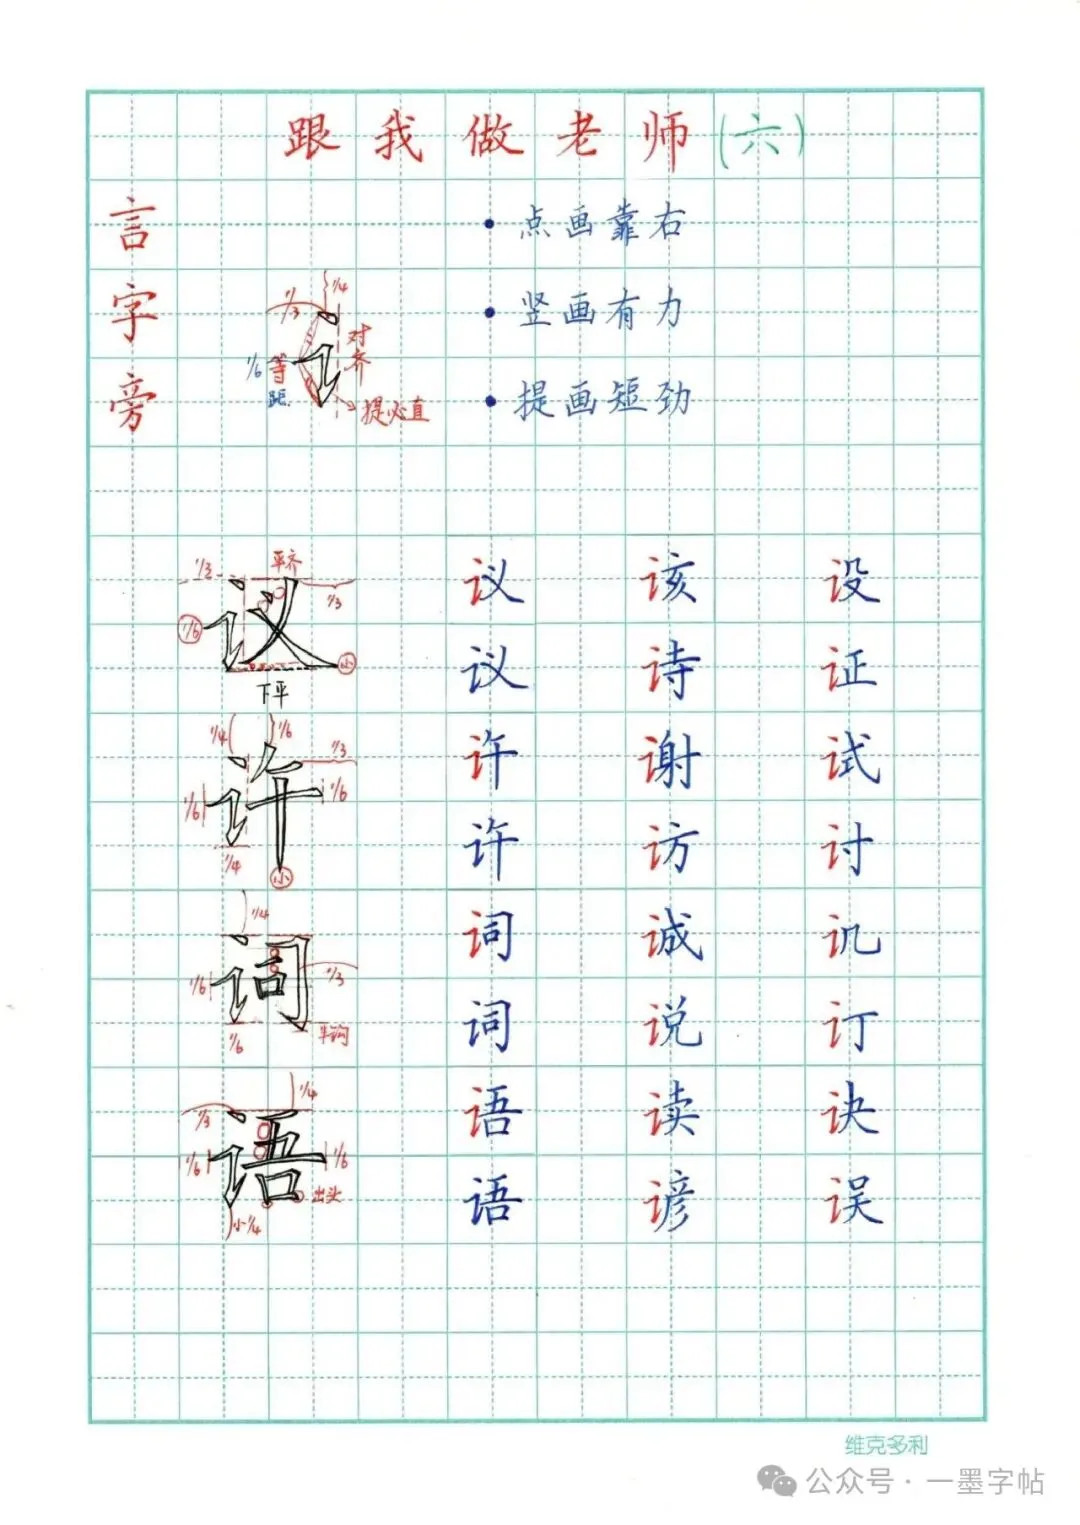 跟我做老师(六)
言字旁
• 点画靠右
• 竖画有力
• 提画短劲
1/3
1/4
对齐
1/6
等距
提必直
1/3 平齐
1/3
1/6
小
下平
议 该 设
议 诗 证
1/4 1/6
1/3
1/6 1/6
1/4
小
许 谢 试
许 访 讨
1/4
1/6 1/3
1/6
词 诚 讥
词 说 订
1/4
1/3
1/6 1/6
出头
小1/4
语 读 诀
语 谚 误
议
许
词
语
维克多利
公众号·一墨字帖